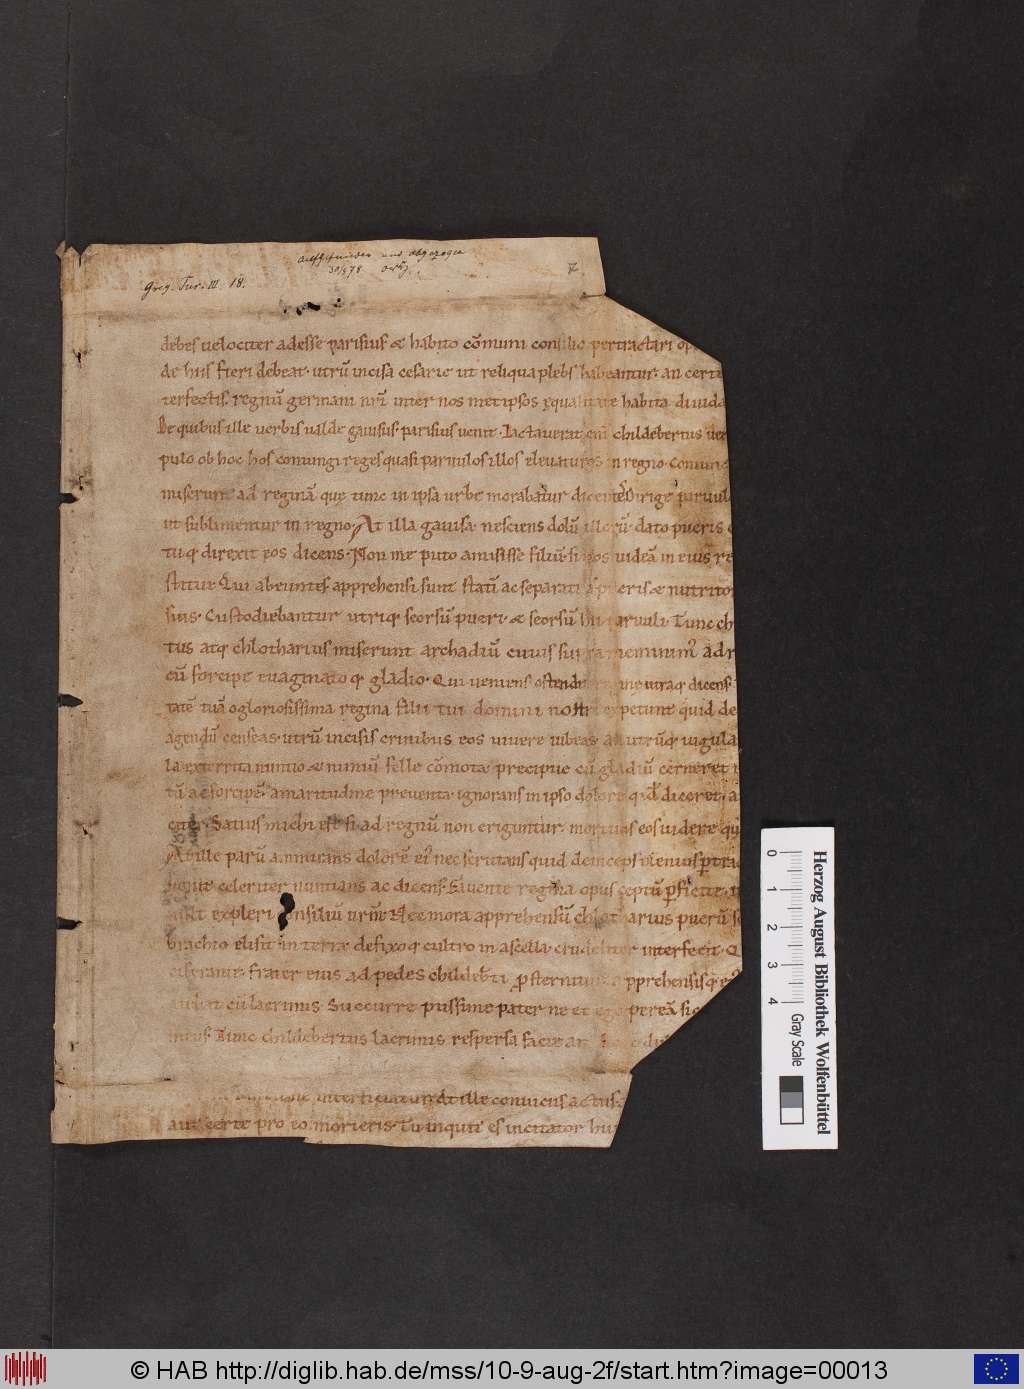 aufgefunden und abgezogen
30/9 78
7
Greg. Tur. III 18.
debes velociter adesse parisius & habito cōmuni consilio pertractari op
de hiis fieri debeat. utrū incisa cesarie ut reliqua plebs habeantur. an certe
terfectis. regnū germani nrī inter nos metipsos ęqualitate habita divida
De quibus ille verbis valde gavisus. parisius venit. Iactaverat enī childebertus ver
pulo ob hoc hos coniungi reges quasi parvulos illos elevaturos in regno. Coniunc
miserunt ad reginā quę tunc in ipsa urbe morabatur dicente. Dirige parvul
ut sublimentur in regno. At illa gavisa nesciens dolū illorū. dato pueris
tuq direxit eos dicens. Non me puto amisisse filiū. si vos videā in eius re
stitui. Qui abeuntes. apprehensi sunt statī ac separati a pueris & nutrito
suis. Custodiebantur utriq seorsū pueri. & seorsū hii parvuli. Tunc ch
tus atq chlotharius miserunt archadiū cuius supra meminim' ad r
cū forcipe evaginato q gladio. Qui veniens ostendit regine utraq dicens.
tatē tuā o gloriosissima regina filii tui domini nostri expetunt quid de
agendū censeas. utrū incisis crinibus eos vivere iubeas. an utrūq iugula
la exterrita nuntio & nimiū felle cōmota precipue cū gladiū cerneret
tū ac forcipē. amaritudine preventa. ignorans in ipso dolore q.d diceret. a
citer. Satius michi est si ad regnū non eriguntur. mortuos eos videre qu
At ille parū ammirans dolorē ei' nec scrutans quid deinceps plenius ptrac
venit celeriter nuntians ac dicens. Favente regina opus ceptū pficite.
expleri consiliū vrm. Nec mora apprehensū chlotharius puerū s
brachio elisit in terra defixoq cultro in ascella crudeliter interfecit. Q
ciferante. frater eius ad pedes childebti psternitur. apprehensisq e
cū lacrimis. Succurre piissime pater ne et ego pereā si
meus. Tunc childebertus lacrimis respersa facie
interficiatur. At ille convicus actus
aut certe pro eo morieris. Tu inquit es incitator hui
Herzog August Bibliothek Wolfenbüttel
0 1 2 3 4
Gray Scale
© HAB http://diglib.hab.de/mss/10-9-aug-2f/start.htm?image=00013